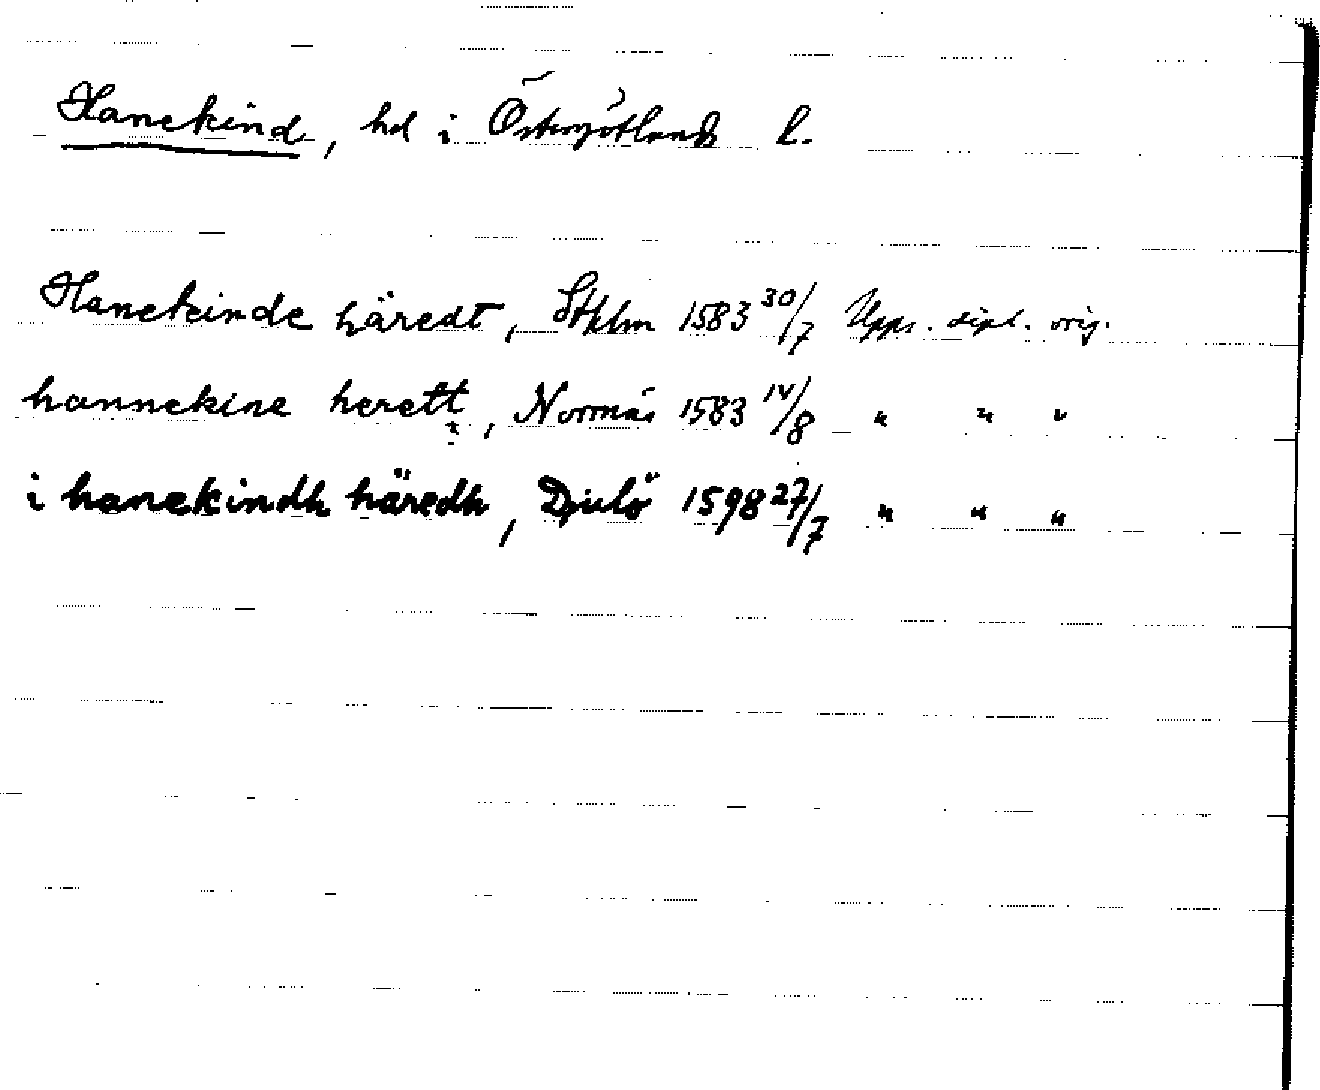 Hanekind, hd i Östergötlands l.
Hanekinde häredt, Sthlm 1583 30/7 Upps. dipl. orig.
hannekine herett, Normås 1583 14/8 " " "
i hanekindh häredh, Djulö 1598 27/7 " " "